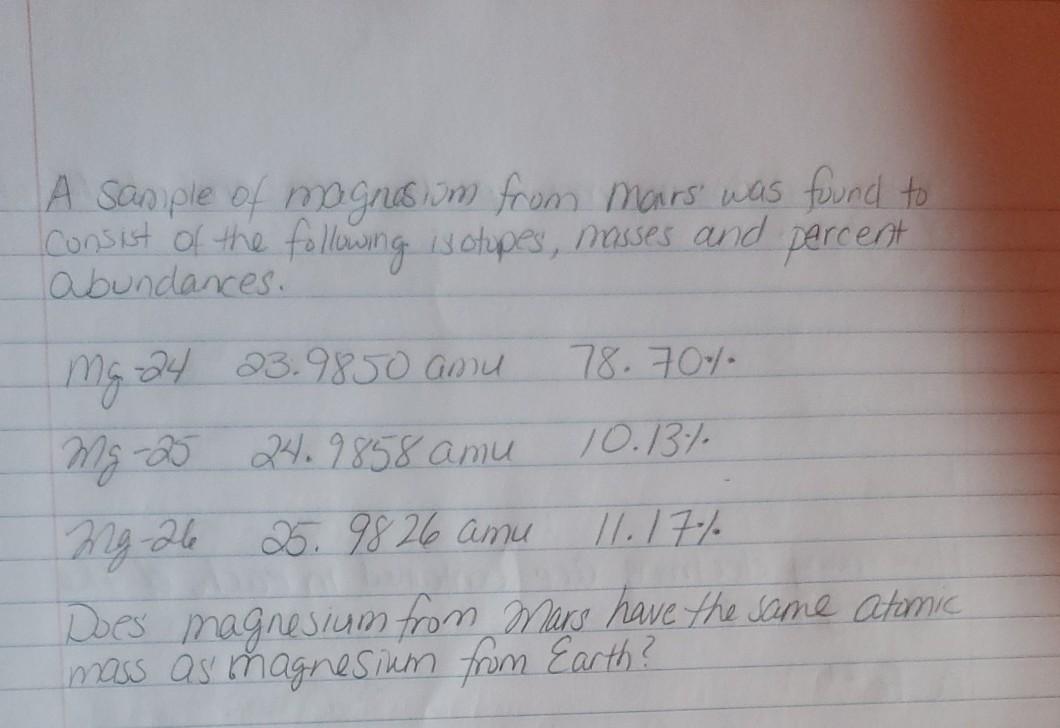 A sample of magnesium from Mars was found to
consist of the following isotopes, masses and percent
abundances.
Mg-24 23.9850 amu 78.70%
Mg-25 24.9858 amu 10.13%
Mg-26 25.9826 amu 11.17%
Does magnesium from Mars have the same atomic
mass as magnesium from Earth?